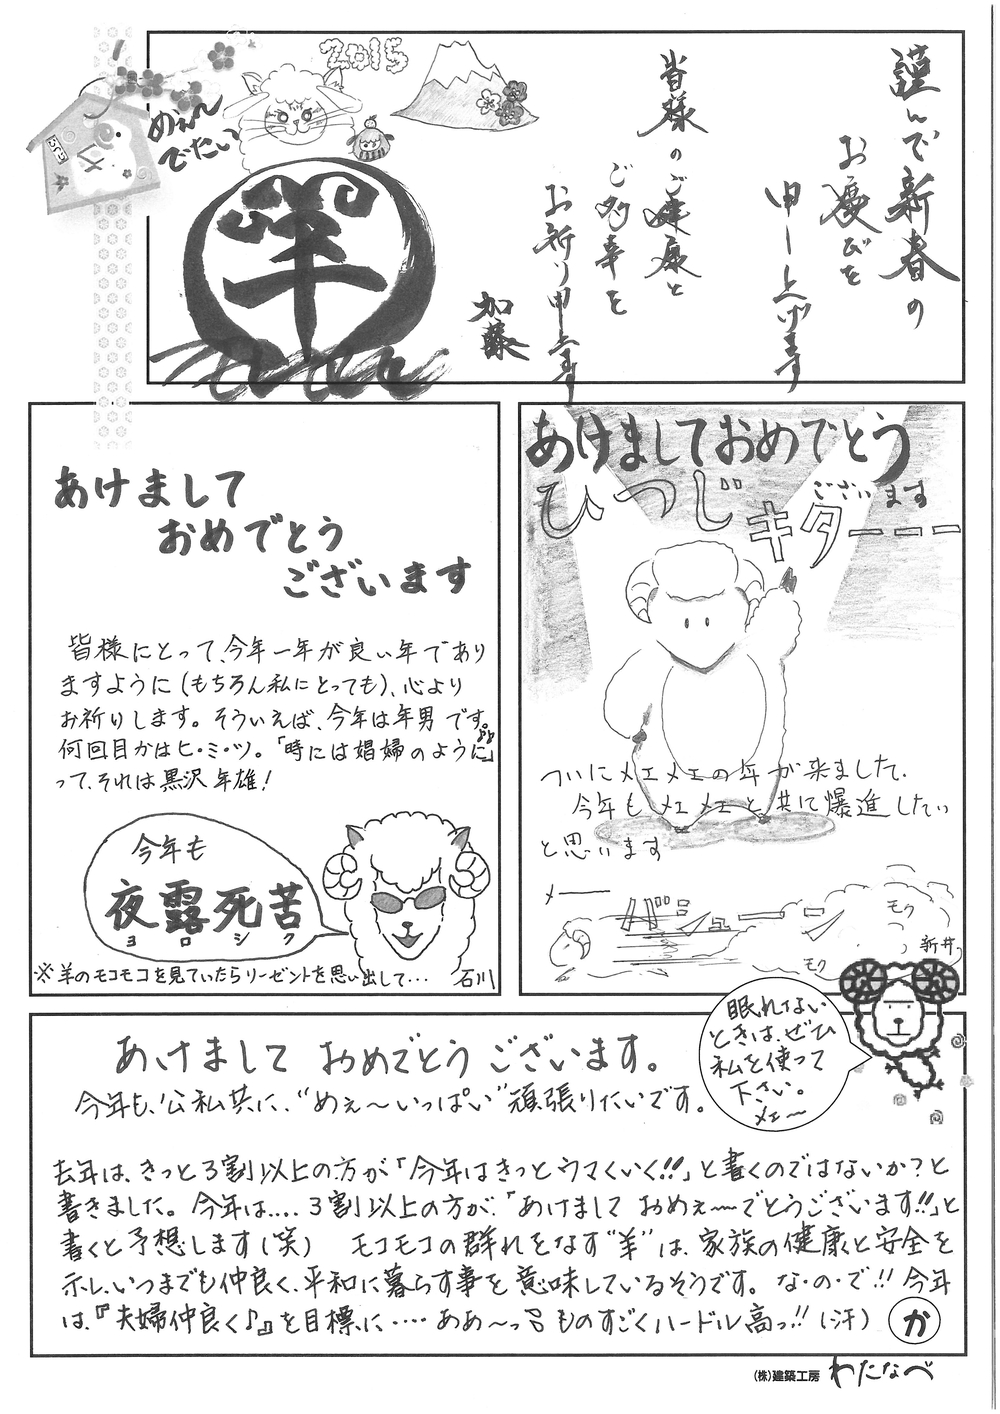 謹んで新春の
お慶びを
申し上げます
皆様のご健康と
ご多幸を
お祈り申し上ます
加藤
2015
めぇ〜
でたい
羊
あけまして
おめでとう
ございます
皆様にとって、今年一年が良い年であり
ますように(もちろん私にとっても)、心より
お祈りします。そういえば、今年は年男です。
何回目かはヒ・ミ・ツ。「時には娼婦のように♪」
って、それは黒沢年雄!
今年も
夜露死苦
ヨロシク
※羊のモコモコを見ていたらリーゼントを思い出して... 石川
あけましておめでとう
ございます
ひつじ
キターーー
ついにメェメェの年が来ました、
今年もメェメェと共に爆進したい
と思います
メ――
バビューン
モク
モク
新井
眠れない
ときは、ぜひ
私を使って
下さい。
メェ〜
あけまして おめでとう ございます。
今年も、公私共に、“めぇ〜いっぱい”頑張りたいです。
去年は、きっと3割以上の方が「今年はきっとウマくいく!!」と書くのではないか?と
書きました。今年は....3割以上の方が、「あけまして おめぇ〜でとうございます!!」と
書くと予想します(笑) モコモコの群れをなす“羊”は、家族の健康と安全を
示し、いつまでも仲良く、平和に暮らす事を意味しているそうです。な・の・で!!今年
は、『夫婦仲良く♪』を目標に....ああ〜っ。ものすごくハードル高っ!!(汗) か
(株)建築工房 わたなべ